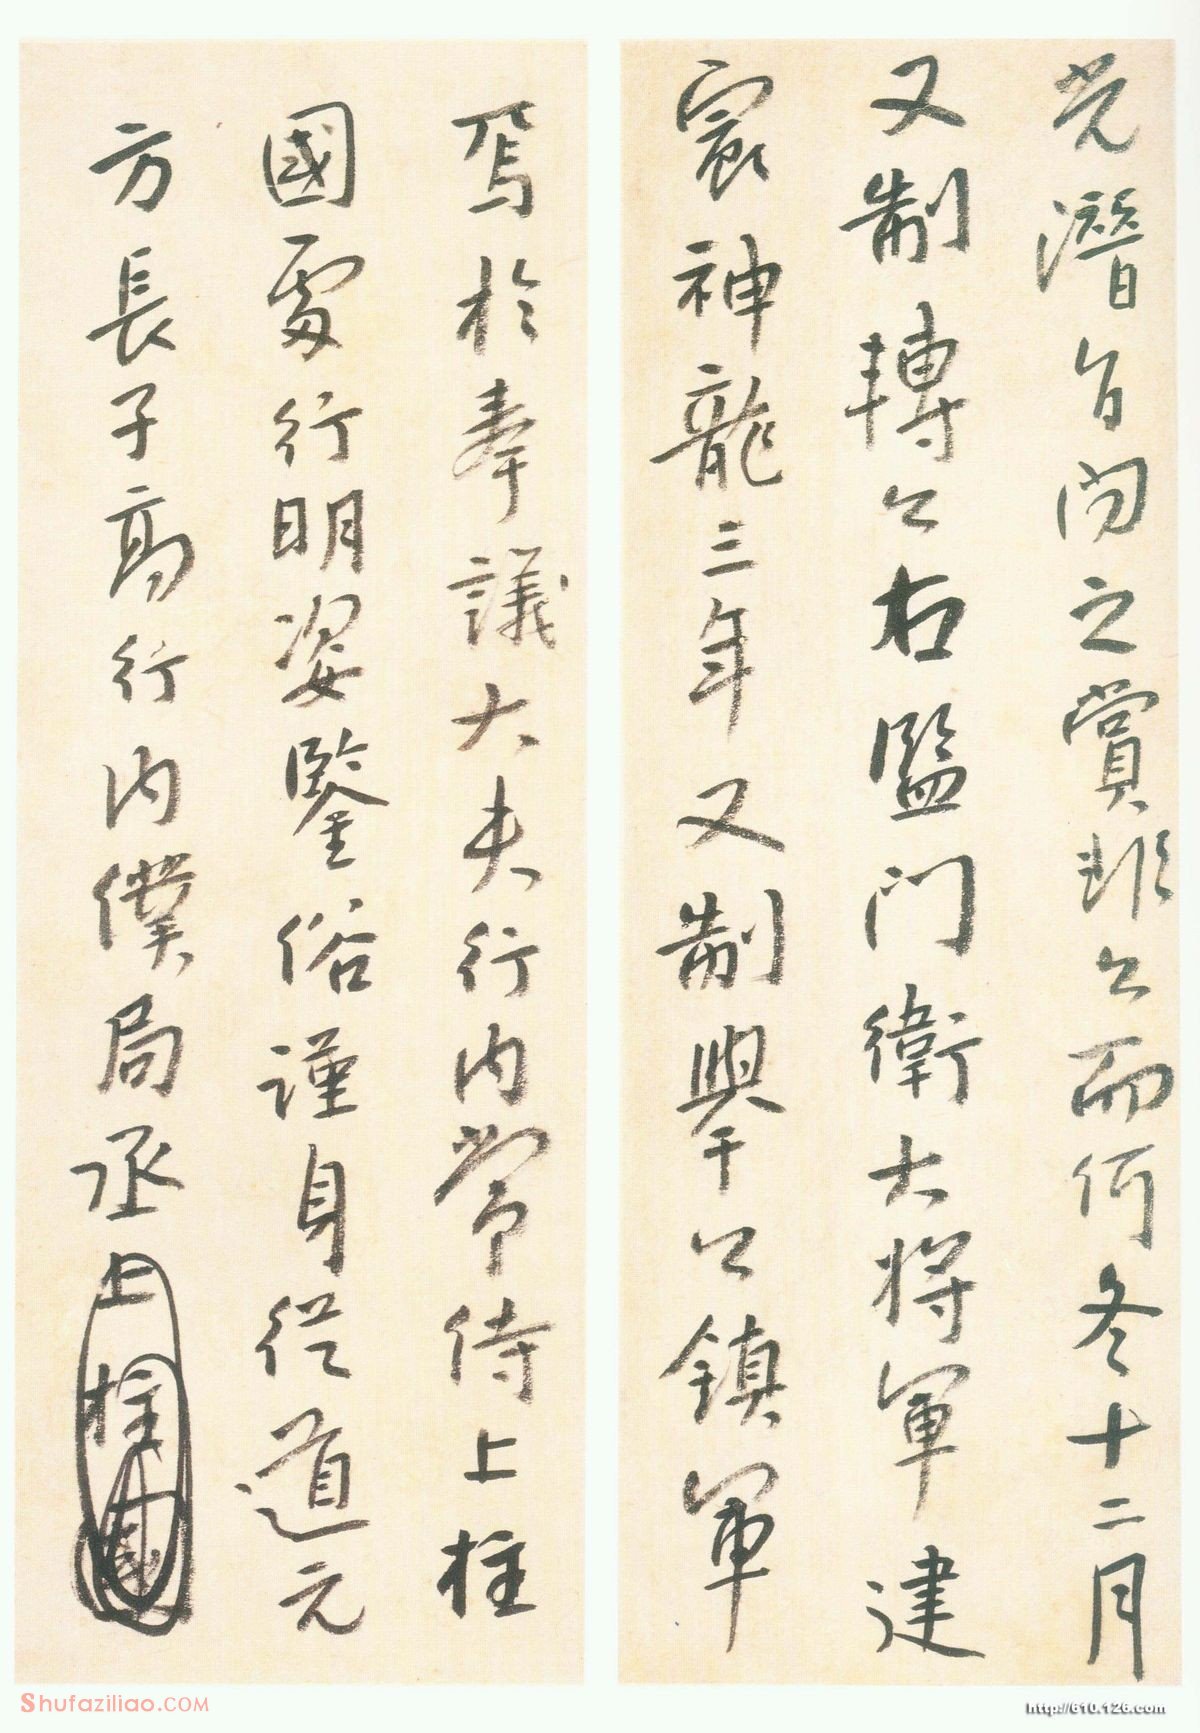 光潛旨問之賞非公而何冬十二月
又制轉公右監門衛大將軍建
寰神龍三年又制舉公鎮軍
焉於奉議大夫行內常侍上柱
國雷行明姿鑒俗謹身從道元
方長子高行內僕局丞上柱國
Shufaziliao.COM
http://610.126.com